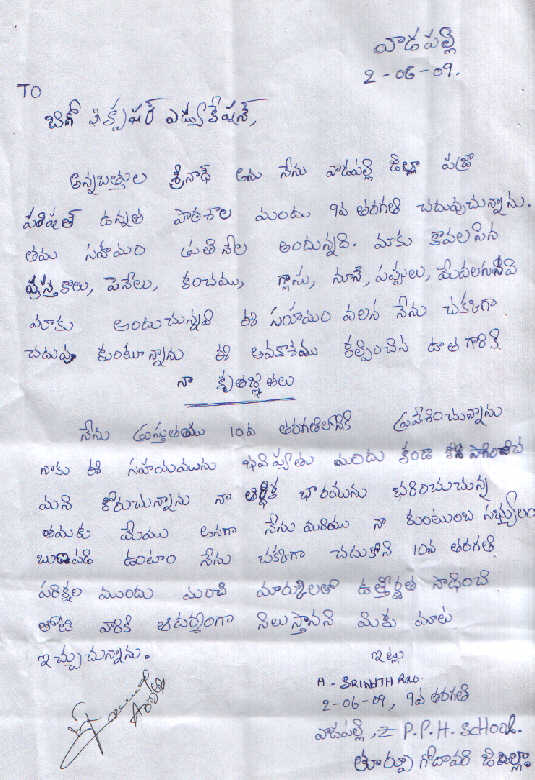 వాడపల్లి
2-06-09.
TO
బిగ్ పిక్చ్చర్ ఎడ్యుకేషన్,
అన్నబత్తుల శ్రీనాథ్ అను నేను వాడపల్లి జిల్లా
పరిషత్ ఉన్నత పాఠశాల నుండు 9వ తరగతి చదువుచున్నాను.
తమ సహాయం ప్రతినెల అందున్నది. మాకు కావలసిన
పుస్తకాలు, పెనేలు, కంచము, గ్లాసు, నూనె, పప్పులు,
మాకు అందుచున్నవి ఈ సహాయం వలన నేను చక్కగా
చదువు కుంటూన్నాను ఈ అవకాశము కల్పించిన దాతగారికి
నా కృతజ్ఞతలు
నేను ప్రస్తుతము 10వ తరగతిలోనికి ప్రవేశించుచున్నాను
నాకు ఈ సహయమును భవిష్యత్తు నందు కుడా
మని కోరుచున్నాను నా ఆర్థిక భారమును భరించుచున్న
తమకు మేము నేను మరియు నా కుంటుంబ సభ్యులం
ఋణపడి ఉంటాం నేను చక్కగా చదుకొని 10వ తరగతి
పరీక్షల ముందు మంచి మార్కులతో ఉత్తీర్ణత సాధించి
తోటి వారికి ఆదర్శంగా నిలుస్తానని మీకు మాట
ఇచ్చుచున్నాను.
ఇట్లు
A. SRINATH
2-06-09, 9వ తరగతి
వాడపల్లి, Z P.P.H. SCHOOL.
తూర్పు గోదావరి జిల్లా